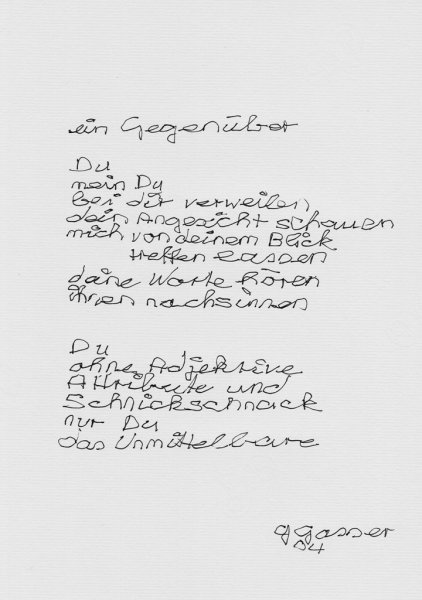 ein Gegenüber
Du
mein Du
bei dir verweilen
dein Angesicht schauen
mich von deinem Blick
treffen lassen
deine Worte hören
ihnen nachsinnen
Du
ohne Adjektive
Attribute und
Schnickschnack
nur Du
das Unmittelbare
g gasser
04